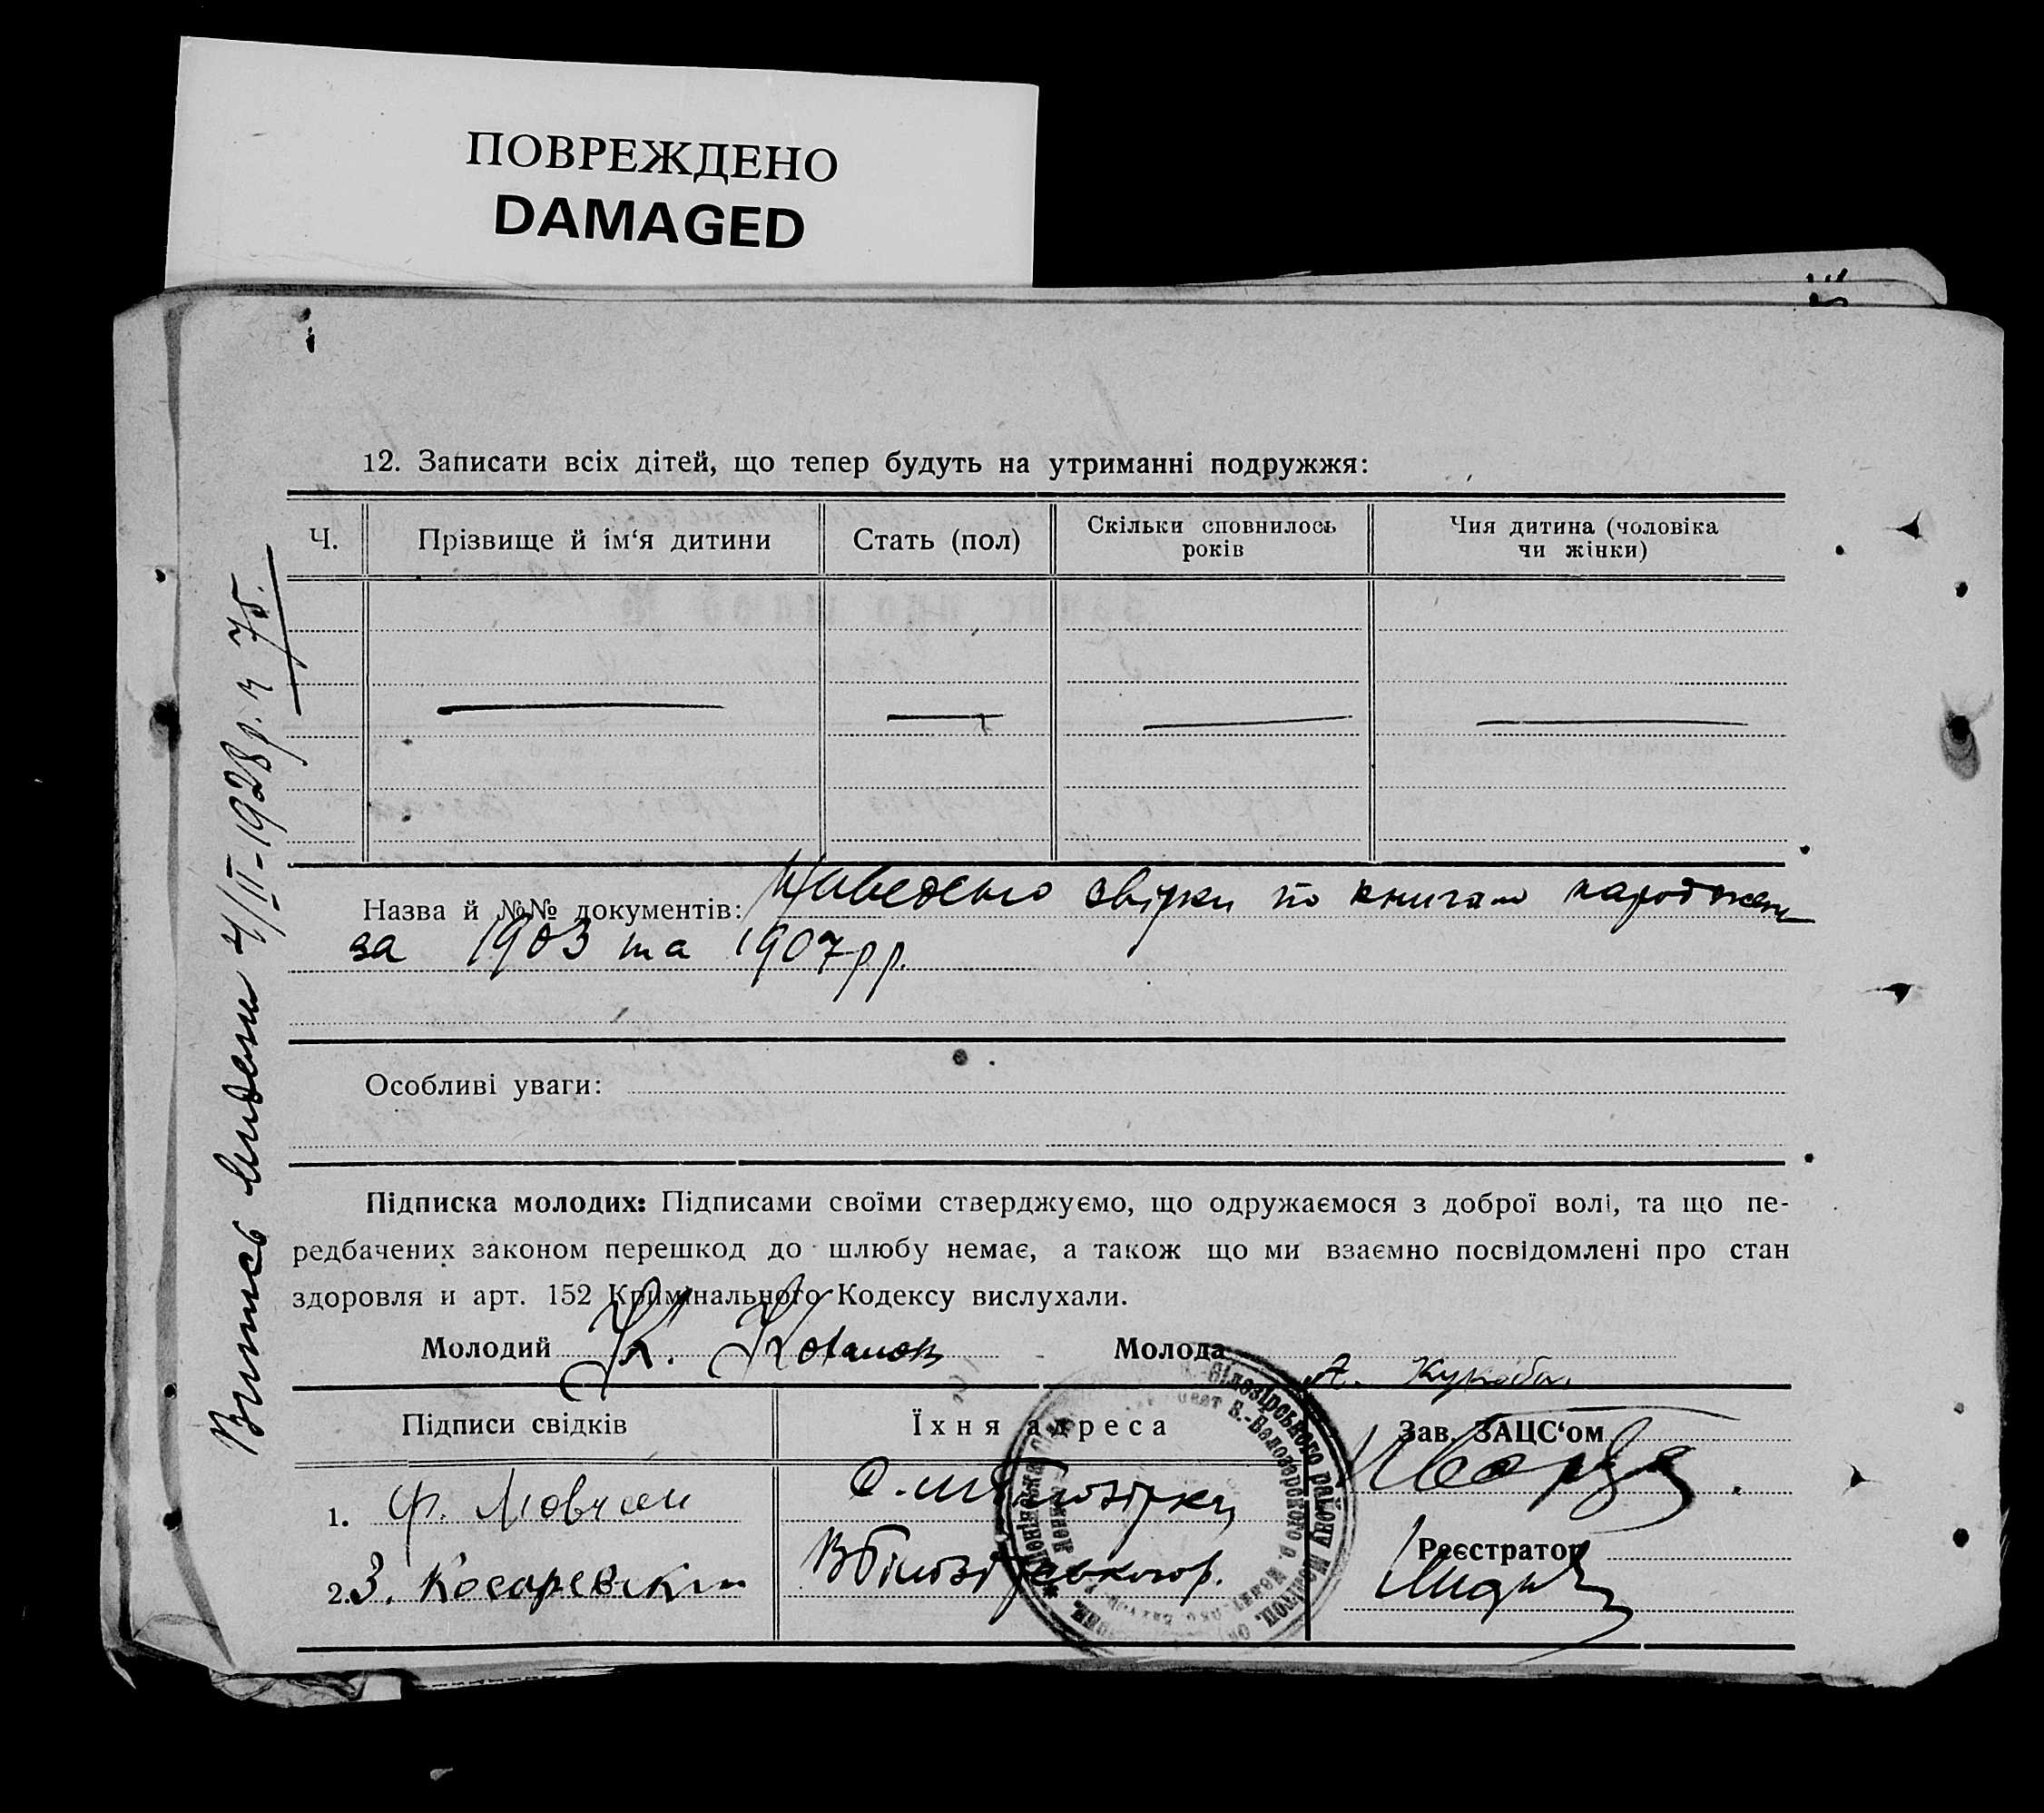 ПОВРЕЖДЕНО
DAMAGED
12. Записати всіх дітей, що тепер будуть на утриманні подружжя:
Ч. Прізвище й ім‘я дитини Стать (пол) Скільки сповнилось років Чия дитина (чоловіка чи жінки)
Назва й №№ документів: звірки по книгам народжень
за 1903 та 1907 рр.
Особливі уваги:
Підписка молодих: Підписами своїми стверджуємо, що одружаємося з доброї волі, та що пе-
редбачених законом перешкод до шлюбу немає, а також що ми взаємно посвідомлені про стан
здоровля и арт. 152 Кримінального Кодексу вислухали.
Молодий К. Молода А. Кукоба
Підписи свідків Їхня адреса Зав. ЗАЦС‘ом
1. Ф. Мовчан
Реєстратор
2. З. Косаревский
Білозірського району Мелітоп.
Випись видани 4/II-1928 р. ч 75.